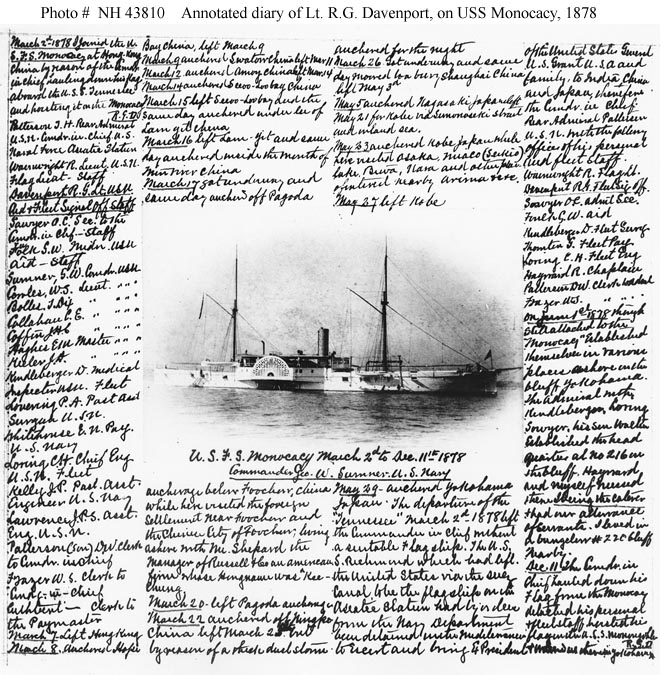 Photo # NH 43810 Annotated diary of Lt. R.G. Davenport, on USS Monocacy, 1878
March 2nd 1878 I joined the U.
S. F. S. Monocacy at Hong Kong
China by reason of the Comdr.
in chief hauling down his flag
aboard the U.S.S. Tennessee
and hoisting it on the Monocacy
R.G.D.
Patterson T. H. Rear Admiral
U.S.N. Comdr. in chief U.S.
Naval Force Asiatic Station
Wainwright R. Lieut. U.S.N.
Flag Lieut. Staff
Davenport R.G. Lt USN
Aid & Fleet Signal Off. Staff
Sawyer O.C. Sec. to the
Comdr. in Chf. Staff
Folk S.W. Midn. USN
Aid Staff
Sumner, G.W. Comdr. USN
Cowles, W.S. Lieut. " "
Bolles T. Dix " " " "
Collahan C. E. " " " "
Coffin J.H.C. " " " "
E.W. Master " " "
J.A. " " "
Hendleberger D. Medical
Inspector USN. Fleet
Lovering P.A. Past Asst
Surgeon U.S.N.
Whitehouse E.N. Pay.
U.S. Navy
Loring C.H. Chief Eng
U.S.N. Fleet
Kelley J.P. Past. Asst.
Engineer U.S. Navy
Lawrence J.P.S. Asst.
Eng. U.S.N.
Patterson (Son) D.W. Clerk
to Comdr. in chief
Frazer W.S. Clerk to
Comdr. in-chief
Clerk to
the Paymaster
March 7 Left Hong Kong
March 8. Anchored Hope
Bay China, left March 9
March 9 anchored Swatow China left Mar 11
March 12 anchored Amoy China left Mar 14
March 14 anchored Sevoo-Lo bay China
March 15 left Sevoo-Lo bay and the
same day anchored under lee of
Lam yit China
March 16 left Lam-yit and same
day anchored inside the mouth of
Min river China
March 17 got underway and
same day anchored off Pagoda
anchored for the night
March 26 Got underway and same
day moved to a buoy Shanghai China
left May 3d
May 5 anchored Nagasaki Japan left
May 21 for Kobe via Simonoseki Strait
and inland sea.
May 23 anchored Kobe Japan while
here visited Osaka, Miaco (Saikio)
Lake, Biwa, Nara and other places
of interest nearby Arima &c.
May 27 left Kobe
U. S. F. S. Monocacy March 2nd to Dec. 11th 1878
Commander Geo. W. Sumner U.S. Navy
anchorage below Foochow, China
while here visited the foreign
settlement near Foochow and
the Chinese City of Foochow; living
ashore with Mr. Shepard the
Manager of Russell & Co an american
firm whose hongname was "Kee-
Chung.
March 20 left Pagoda anchorage
March 22 anchored off Ningpo
China left March 25 but
by reason of a thick dust storm
May 29 anchored Yokohama
Japan. The departure of the
"Tennessee" March 2nd 1878 left
the Commander in Chief without
a suitable Flagship. The U.S.
S. Richmond which had left
the United States via the Suez
Canal to be the flagship on the
Asiatic Station had by order
from the Navy Department
been detained in the Mediterranean
to escort and bring Ex President
of the United States General
U.S. Grant U.S.A. and
family, to India China
and Japan, therefore
the Comdr. in Chief
Rear Admiral Patterson
U.S.N. with the following
officers of his personal
and fleet staff.
Wainwright R. Flag Lt.
Davenport R.G. Flt Sig. off.
Sawyer O.C. admls Sec.
Folk G.W. aid
Hendleberger D. Fleet Surg.
Thornton G. Fleet Pay.
Loring C. H. Fleet Eng
Hayward R. Chaplain
Patterson D.W. Clerk
Frazer W.S. " "
On June 1st 1878 though
still attached to the
"Monocacy" Established
themselves in various
places ashore on the
bluff Yokohama.
The admiral with
Hendleberger, Loring
Sawyer, his son Walter
Established the head
quarters at No 216 on
the bluff. Hayward,
and myself messed
there. I being the caterer
& had our allowance
of servants. I lived in
a bungalow # 220 bluff
nearby.
Dec. 11 The Comdr. in
Chief hauled down his
Flag from the Monocacy
detached his personal
& fleet staff hoisted his
flag on the U.S.S. Monongahela
R.G.D.
Yokohama